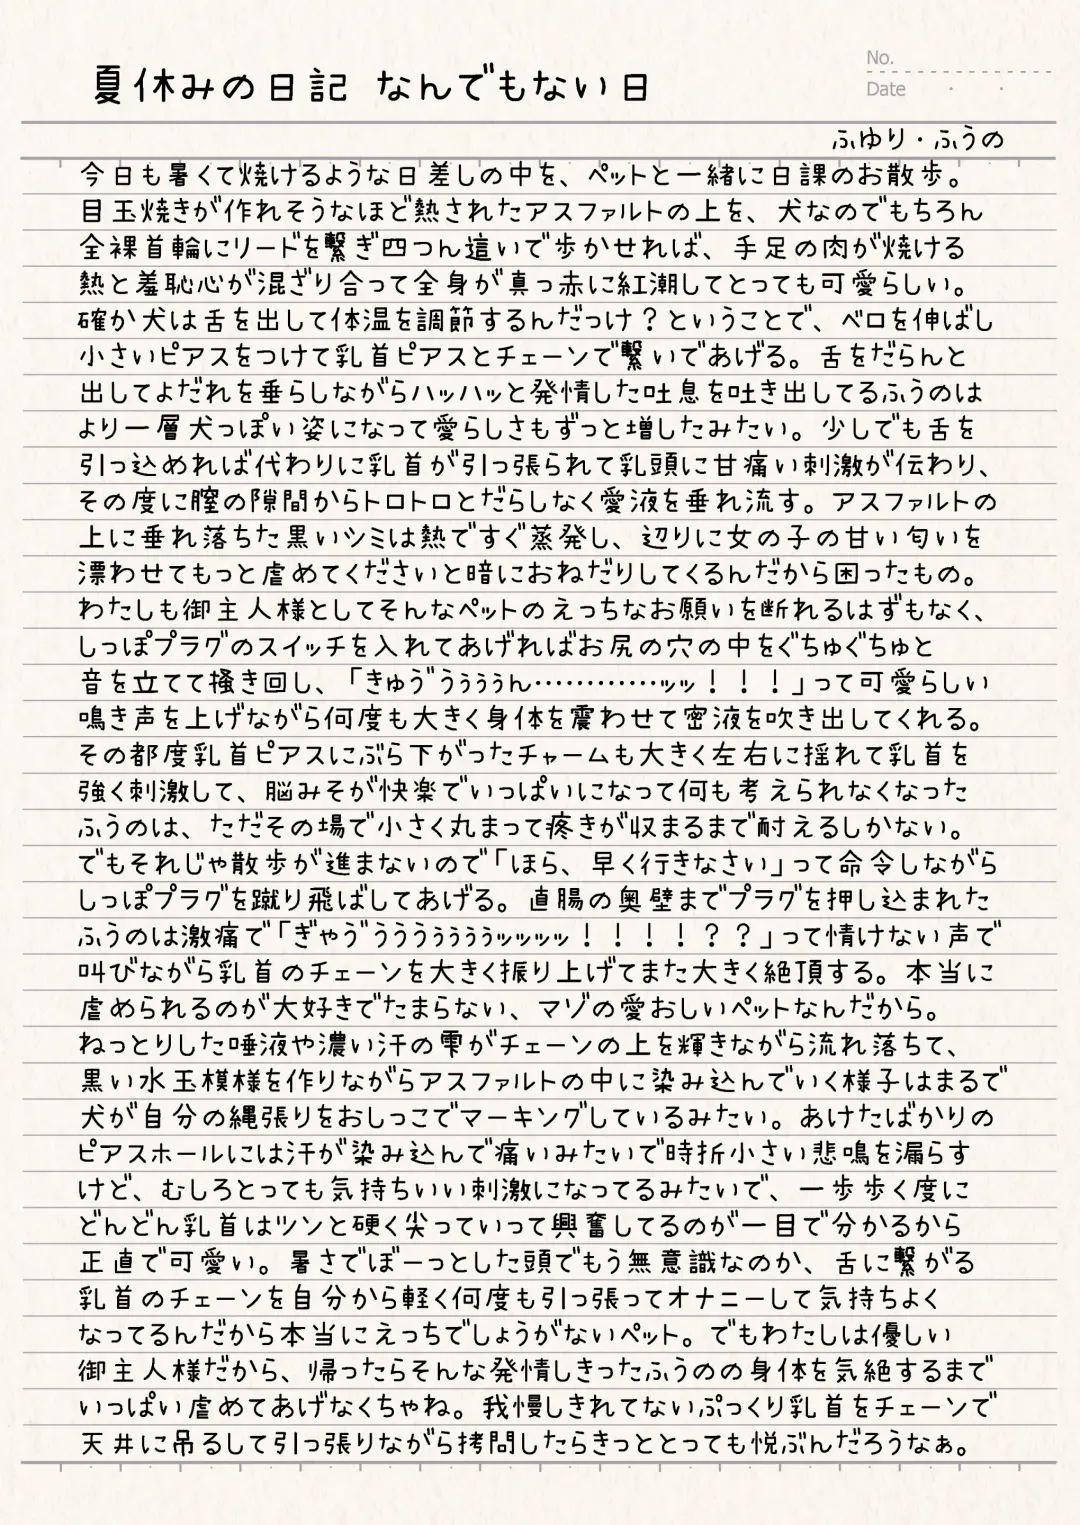 夏休みの日記 なんでもない日
No.
Date
ふゆり・ふうの
今日も暑くて焼けるような日差しの中を、ペットと一緒に日課のお散歩。
目玉焼きが作れそうなほど熱されたアスファルトの上を、犬なのでもちろん
全裸首輪にリードを繋ぎ四つん這いで歩かせれば、手足の肉が焼ける
熱と羞恥心が混ざり合って全身が真っ赤に紅潮してとっても可愛らしい。
確か犬は舌を出して体温を調節するんだっけ？ということで、ベロを伸ばし
小さいピアスをつけて乳首ピアスとチェーンで繋いであげる。舌をだらんと
出してよだれを垂らしながらハッハッと発情した吐息を吐き出してるふうのは
より一層犬っぽい姿になって愛らしさもずっと増したみたい。少しでも舌を
引っ込めれば代わりに乳首が引っ張られて乳頭に甘痛い刺激が伝わり、
その度に膣の隙間からトロトロとだらしなく愛液を垂れ流す。アスファルトの
上に垂れ落ちた黒いシミは熱ですぐ蒸発し、辺りに女の子の甘い匂いを
漂わせてもっと虐めてくださいと暗におねだりしてくるんだから困ったもの。
わたしも御主人様としてそんなペットのえっちなお願いを断れるはずもなく、
しっぽプラグのスイッチを入れてあげればお尻の穴の中をぐちゅぐちゅと
音を立てて掻き回し、「きゅう゛うぅぅぅん…………ッッ！！！」って可愛らしい
鳴き声を上げながら何度も大きく身体を震わせて密液を吹き出してくれる。
その都度乳首ピアスにぶら下がったチャームも大きく左右に揺れて乳首を
強く刺激して、脳みそが快楽でいっぱいになって何も考えられなくなった
ふうのは、ただその場で小さく丸まって疼きが収まるまで耐えるしかない。
でもそれじゃ散歩が進まないので「ほら、早く行きなさい」って命令しながら
しっぽプラグを蹴り飛ばしてあげる。直腸の奥壁までプラグを押し込まれた
ふうのは激痛で「ぎゃう゛うううぅぅぅぅッッッッ！！！！？？」って情けない声で
叫びながら乳首のチェーンを大きく振り上げてまた大きく絶頂する。本当に
虐められるのが大好きでたまらない、マゾの愛おしいペットなんだから。
ねっとりした唾液や濃い汗の雫がチェーンの上を輝きながら流れ落ちて、
黒い水玉模様を作りながらアスファルトの中に染み込んでいく様子はまるで
犬が自分の縄張りをおしっこでマーキングしているみたい。あけたばかりの
ピアスホールには汗が染み込んで痛いみたいで時折小さい悲鳴を漏らす
けど、むしろとっても気持ちいい刺激になってるみたいで、一歩歩く度に
どんどん乳首はツンと硬く尖っていって興奮してるのが一目で分かるから
正直で可愛い。暑さでぼーっとした頭でもう無意識なのか、舌に繋がる
乳首のチェーンを自分から軽く何度も引っ張ってオナニーして気持ちよく
なってるんだから本当にえっちでしょうがないペット。でもわたしは優しい
御主人様だから、帰ったらそんな発情しきったふうのの身体を気絶するまで
いっぱい虐めてあげなくちゃね。我慢しきれてないぷっくり乳首をチェーンで
天井に吊るして引っ張りながら拷問したらきっととっても悦ぶんだろうなぁ。